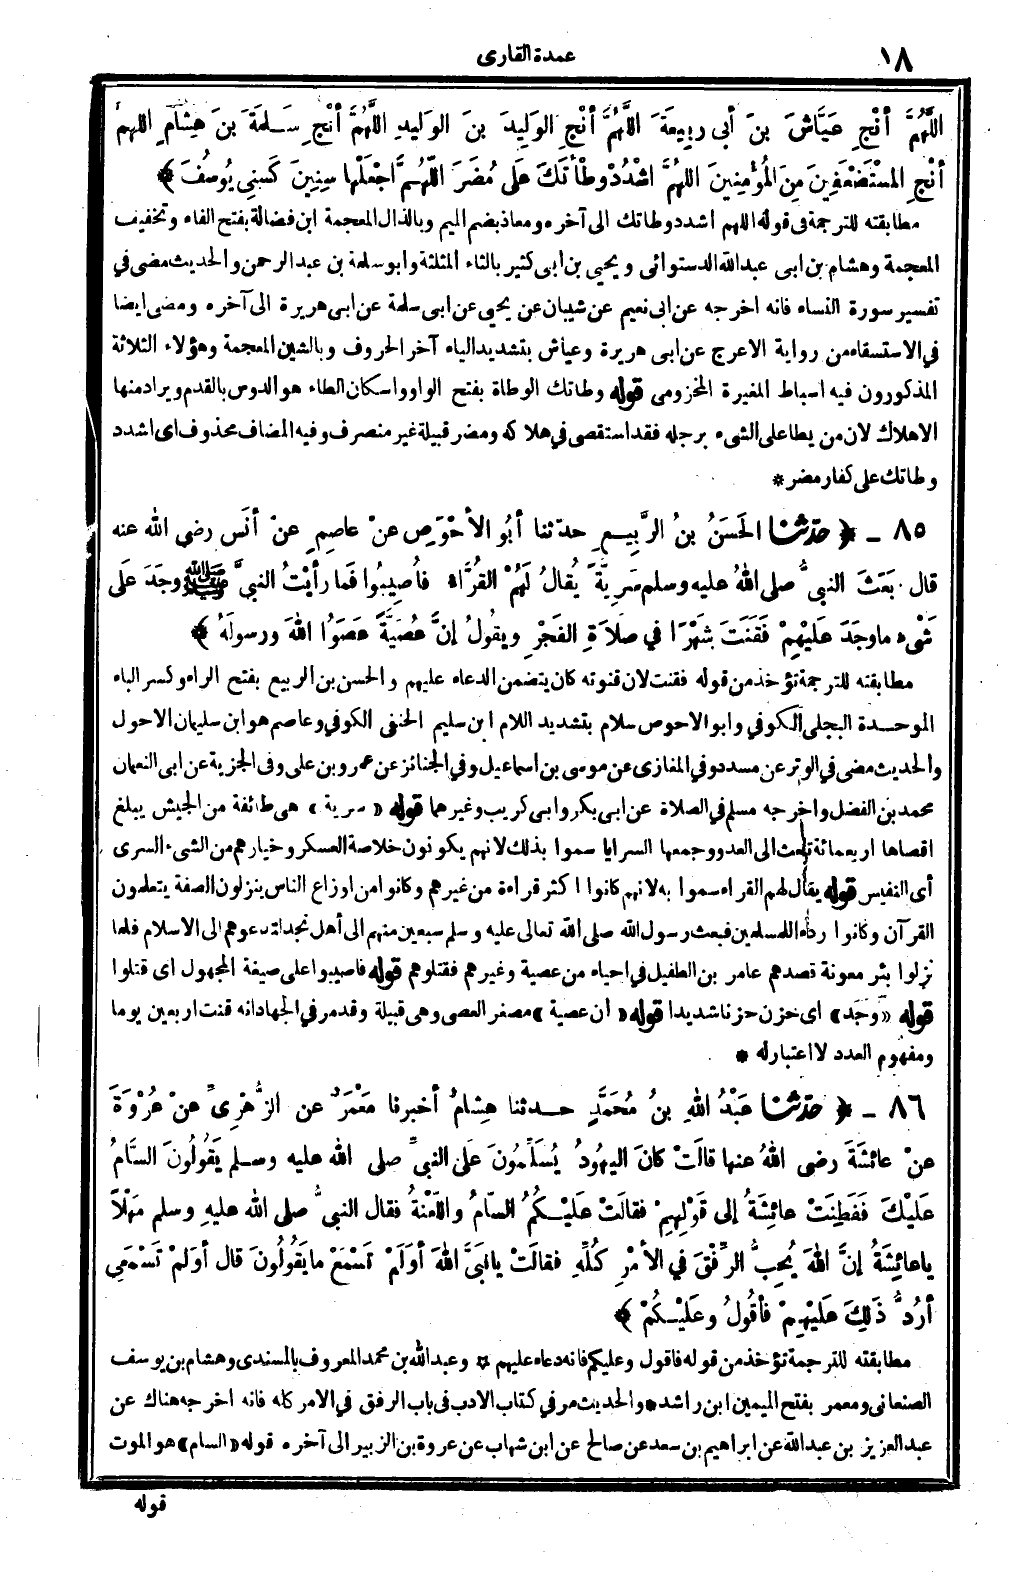 ١٨
عمدة القارى
اللَّهُمَّ أَنْجِ عَيَّاشَ بنَ أبى رَبِيعَةَ اللَّهُمَّ أَنْجِ الوَلِيدَ بنَ الوَلِيدِ اللَّهُمَّ أَنْجِ سَلَمَةَ بنَ هِشَامٍ اللهم
أَنْجِ المُسْتَضْعَفِينَ مِنَ المُؤْمِنِينَ اللهُمَّ اشْدُدْ وطْأَتَكَ عَلى مُضَرَ اللَّهُمَّ اجْعَلْها سِنِينَ كَسِنِى يُوسُفَ ﴾ *
مطابقته للترجمة فى قوله اللهم اشدد وطاتك الى آخره ومعاذ بضم الميم وبالذال المعجمة ابن فضالة بفتح الفاء وتخفيف
المعجمة وهشام بن ابى عبدالله الدستوائى ويحيى بن ابى كثير بالثاء المثلثة وابو سلمة بن عبدالرحمن والحديث مضى في
تفسير سورة النساء فانه اخرجه عن ابى نعيم عن شيبان عن يحيى عن ابى سلمة عن ابى هريرة الى آخره ومضى ايضا
في الاستسقاء من رواية الاعرج عن ابى هريرة وعياش بتشديد الياء آخر الحروف وبالشين المعجمة وهؤلاء الثلاثة
المذكورون فيه اسباط المغيرة المخزومى قوله وطاتك الوطاة بفتح الواو واسكان الطاء هو الدوس بالقدم ويراد منها
الاهلاك لان من يطا على الشىء برجله فقد استقصى في هلاكه ومضر قبيلة غير منصرف وفيه المضاف محذوف اى اشدد
وطاتك على كفار مضر *
٨٥ - ﴿ حدّثنا الحَسَنُ بنُ الرَّبِيعِ حدثنا أَبُو الأَحْوَصِ عنْ عاصِمٍ عنْ أنَسٍ رضى الله عنه
قال بَعَثَ النبىُّ صلى اللهُ عليه وسلم سَرِيَّةً يُقَالُ لَهُمْ القُرَّاءُ فأُصِيبُوا فَما رأيْتُ النبىَّ ﷺ وجَدَ عَلَى
شَىْءٍ ماوجَدَ عَلَيْهِمْ فَقَنَتَ شَهْرًا في صَلاَةِ الفَجْرِ ويقُولُ إنَّ عُصَيَّةَ عَصَوُا اللهَ ورسولَهُ ﴾ *
مطابقته للترجمة تؤخذ من قوله فقنت لان قنوته كان يتضمن الدعاء عليهم والحسن بن الربيع بفتح الراء وكسر الباء
الموحدة البجلى الكوفي وابو الاحوص سلام بتشديد اللام ابن سليم الحنفى الكوفي وعاصم هو ابن سليمان الاحول
والحديث مضى في الوتر عن مسدد وفي المغازى عن موسى بن اسماعيل وفي الجنائز عن عمرو بن على وفى الجزية عن ابى النعمان
محمد بن الفضل واخرجه مسلم في الصلاة عن ابى بكر وابى كريب وغيرهما قوله «سرية» هى طائفة من الجيش يبلغ
اقصاها اربعمائة تبعث الى العدو وجمعها السرايا سموا بذلك لانهم يكونون خلاصة العسكر وخيارهم من الشىء السرى
أى النفيس قوله يقال لهم القراء سموا به لانهم كانوا اكثر قراءة من غيرهم وكانوا من اوزاع الناس ينزلون الصفة يتعلمون
القرآن وكانوا ردءا للمسلمين فبعث رسول الله صلى الله تعالى عليه وسلم سبعين منهم الى أهل نجد لتدعوهم الى الاسلام فلما
نزلوا بئر معونة قصدهم عامر بن الطفيل في احياء من عصية وغيرهم فقتلوهم قوله فاصيبوا على صيغة المجهول اى قتلوا
قوله «وَجَد» اى حزن حزنا شديدا قوله «ان عصية» مصغر العصى وهى قبيلة وقد مر في الجهاد انه قنت اربعين يوما
ومفهوم العدد لا اعتبار له *
٨٦ - ﴿ حدّثنا عَبْدُ اللهِ بنُ مُحَمَّدٍ حدثنا هِشامٌ أخبرنا مَعْمَرٌ عن الزُّهْرِىِّ عنْ عُرْوَةَ
عنْ عائِشَةَ رضى اللهُ عنها قالَتْ كانَ اليهُودُ يُسَلِّمُونَ عَلَى النبىِّ صلى الله عليه وسلم يَقُولُونَ السَّامُ
عَلَيْكَ فَفَطِنَتْ عائِشَةُ إلى قَوْلِهِمْ فقالَتْ عَلَيْكُمُ السَّامُ واللَّعْنَةُ فقال النبىُّ صلى الله عليهِ وسلم مَهْلاً
ياعائِشَةُ إنَّ اللهَ يُحِبُّ الرِّفْقَ في الأمْرِ كُلِّهِ فقالَتْ يانَبىَّ اللهَ أوَلَمْ تَسْمَعْ مايَقُولُونَ قال أوَلَمْ تَسْمَعِى
أرُدُّ ذَلِكَ عَلَيْهِمْ فأقُولُ وعَلَيْكُمْ ﴾ *
مطابقته للترجمة تؤخذ من قوله فاقول وعليكم فانه دعاء عليهم * وعبدالله بن محمد المعروف بالمسندى وهشام بن يوسف
الصنعانى ومعمر بفتح الميمين ابن راشد * والحديث مر في كتاب الادب فى باب الرفق في الامر كله فانه اخرجه هناك عن
عبدالعزيز بن عبدالله عن ابراهيم بن سعد عن صالح عن ابن شهاب عن عروة بن الزبير الى آخره قوله «السام» هو الموت
قوله